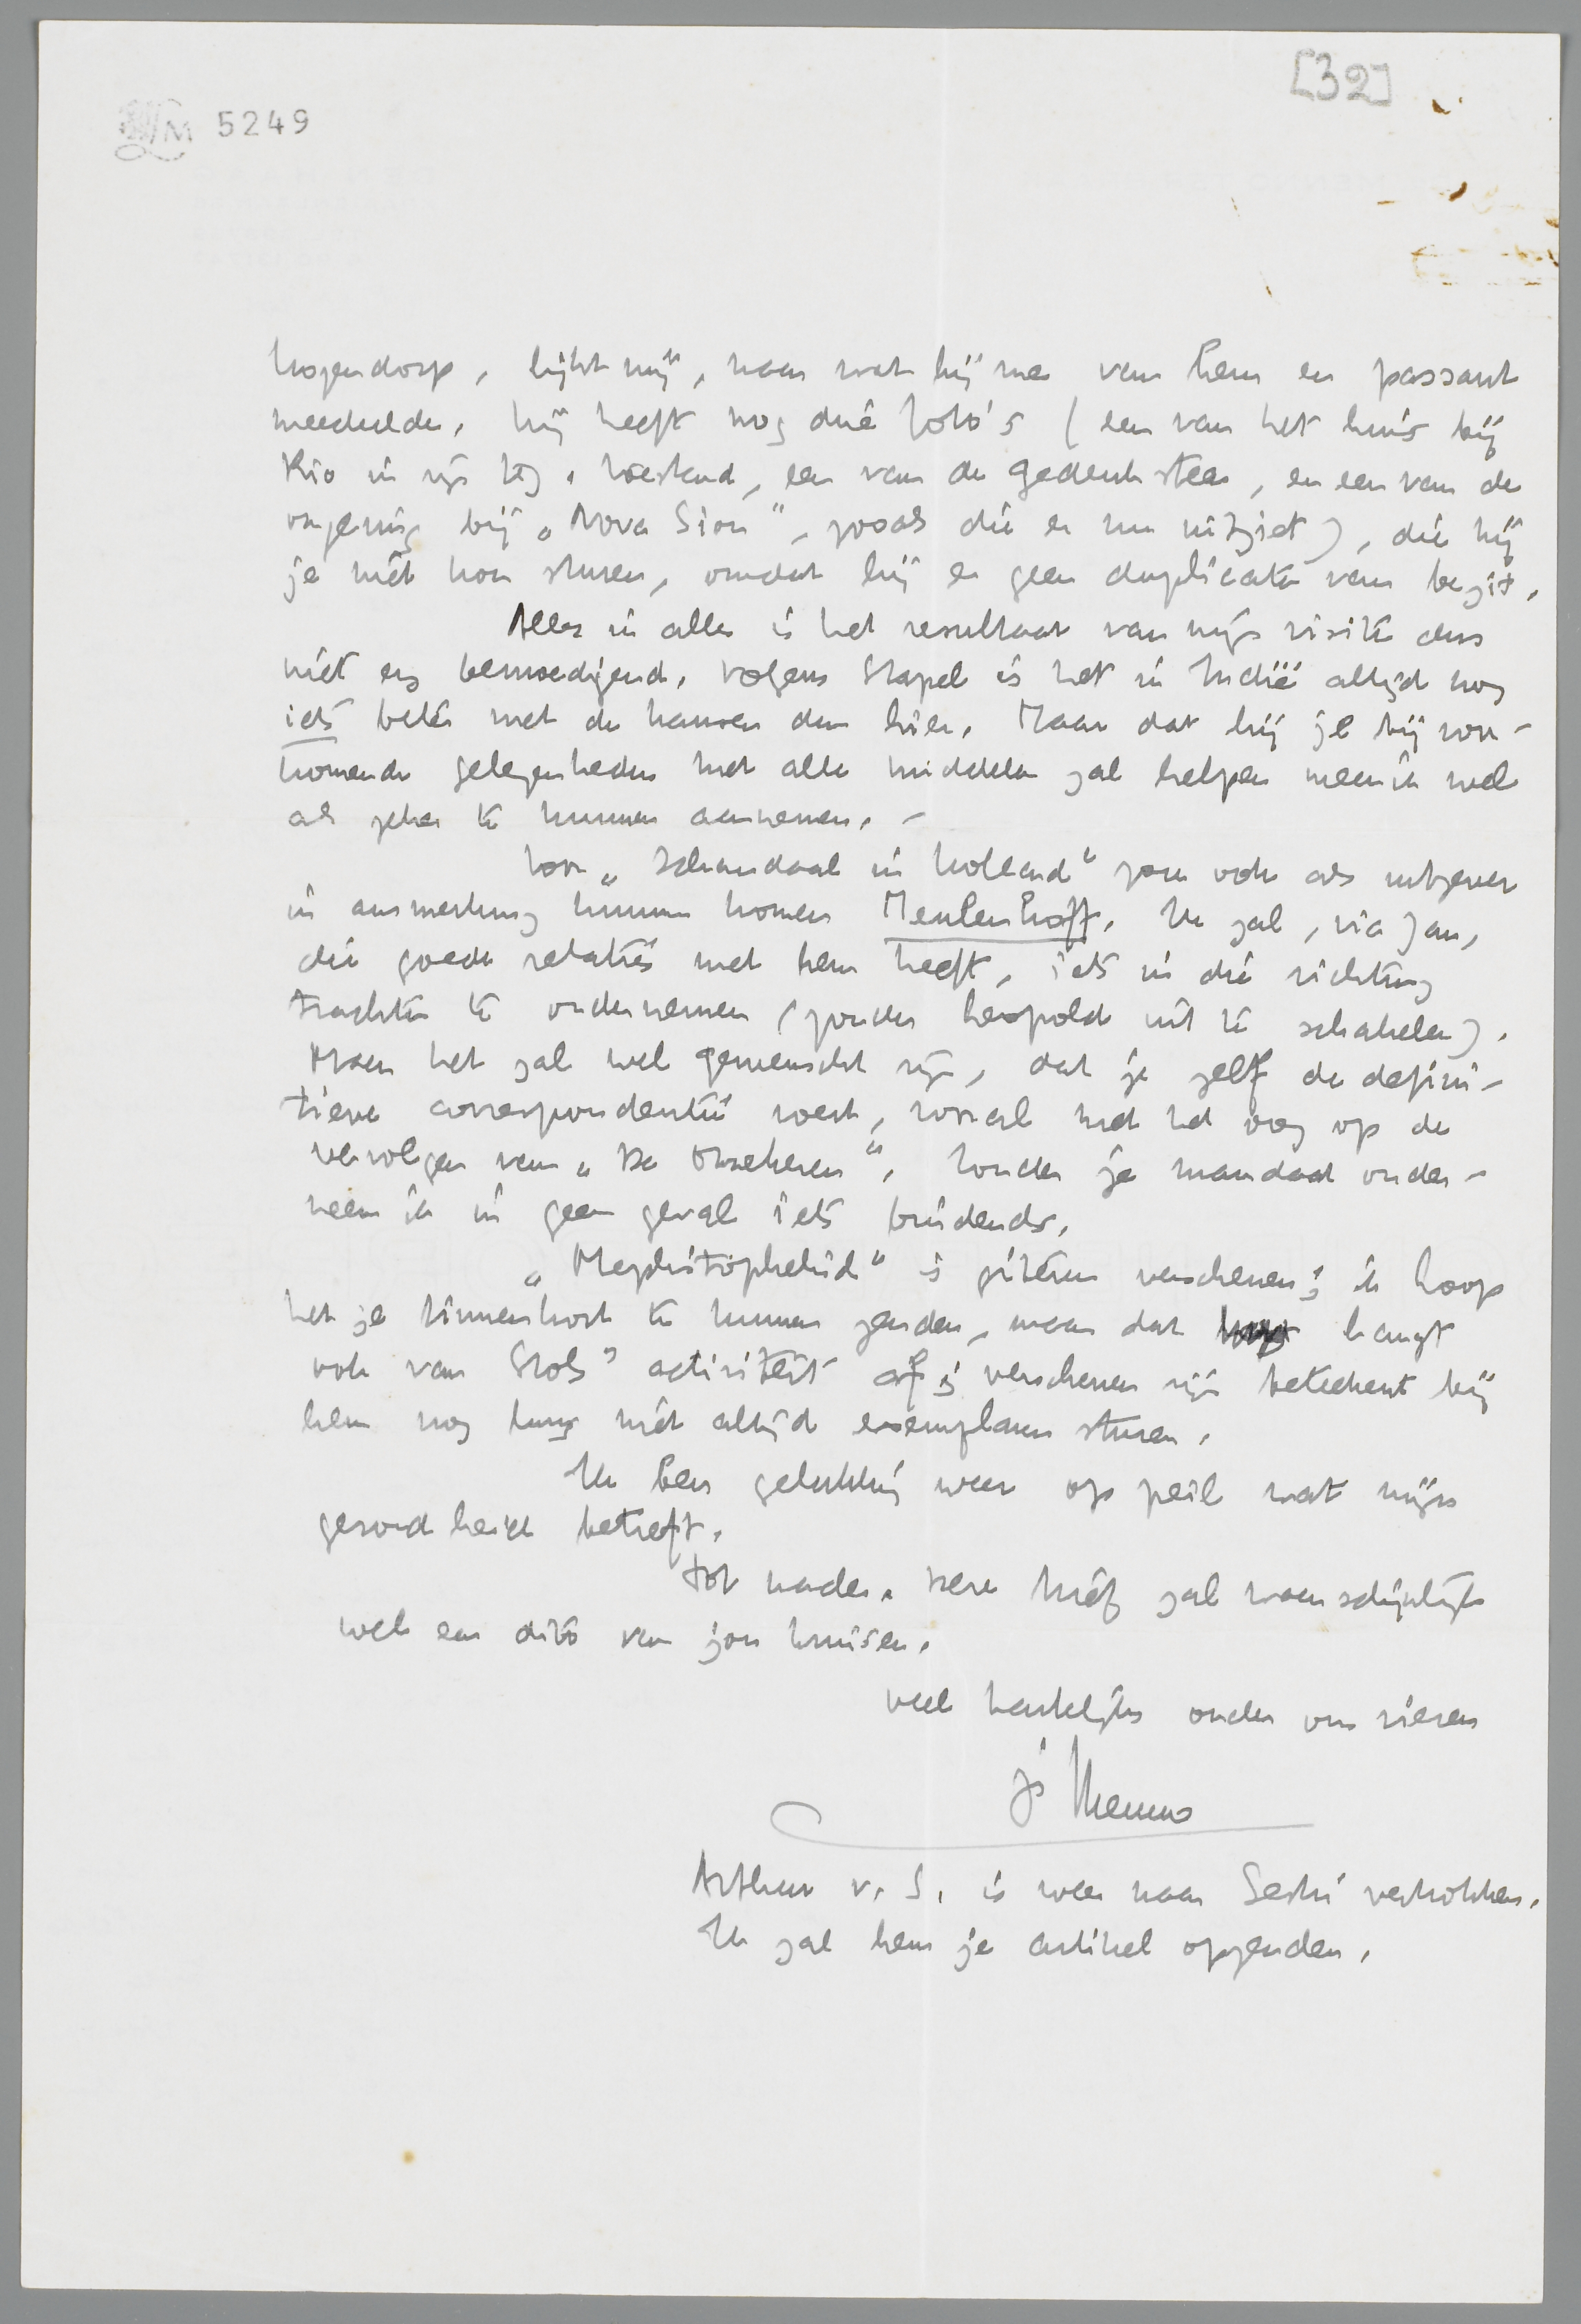 [32]
LM 5249
Hogendorp, lijkt mij, naar wat hij me van hem en passant
meedeelde. Hij heeft nog drie foto's (een van het huis bij
Rio in zijn tegenw. toestand, een van de gedenksteen, en een van de
omgeving bij „Nova Sion", zooals die er nu uitziet), die hij
je niet kon sturen, omdat hij er geen duplicaten van bezit.
Alles in alles is het resultaat van mijn visite dus
niet erg bemoedigend. Volgens Stapel is het in Indië altijd nog
iets beter met de kansen dan hier. Maar dat hij je bij voor-
komende gelegenheden met alle middelen zal helpen meen ik wel
als zeker te kunnen aannemen. –
Voor „Schandaal in Holland" zou ook als uitgever
in aanmerking kunnen komen Meulenhoff. Ik zal, via Jan,
die goede relaties met hem heeft, iets in die richting
trachten te ondernemen (zonder Leopold uit te schakelen).
Maar het zal wel gewenscht zijn, dat je zelf de defini-
tieve correspondentie voert, vooral met het oog op de
vervolgen van „De Onzekeren". Zonder je mandaat onder-
neem ik in geen geval iets bindends.
„Mephistophelisch" is gisteren verschenen; ik hoop
het je binnenkort te kunnen zenden, maar dat hangt
ook van Stols' activiteit af; verschenen zijn beteekent bij
hem nog lang niet altijd exemplaren sturen.
Ik ben gelukkig weer op peil wat mijn
gezondheid betreft.
Tot nader. Deze brief zal waarschijnlijk
wel een dito van jou kruisen.
veel hartelijks onder ons vieren
je Menno
Arthur v. S. is weer naar Sestri vertrokken.
Ik zal hem je artikel opzenden.